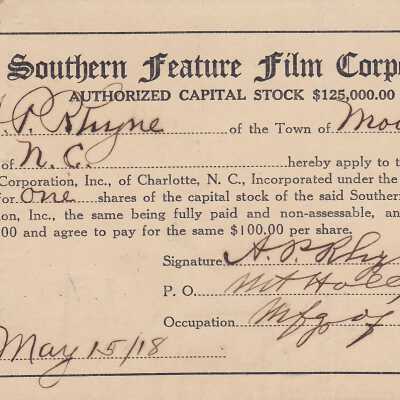 Southern Feature Film Corpo
AUTHORIZED CAPITAL STOCK $125,000.00
. P. Rhyne of the Town of Mou
of N. C. hereby apply to the
Corporation, Inc., of Charlotte, N. C., Incorporated under the
for one shares of the capital stock of the said Southern
ion, Inc., the same being fully paid and non-assessable, an
00 and agree to pay for the same $100.00 per share.
Signature A. P. Rhy
P. O. Mt Holl
Occupation Mfg of
May 15/18